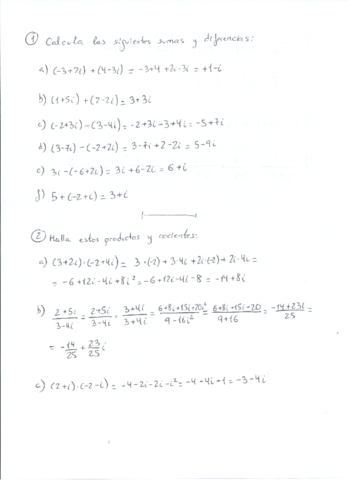 ① Calcula las siguientes sumas y diferencias:
a) (-3+2i) + (4-3i) = -3+4+2i-3i = +1-i
b) (1+5i) + (2-2i) = 3+3i
c) (-2+3i) - (3-4i) = -2+3i-3+4i = -5+7i
d) (3-7i) - (-2+2i) = 3-7i+2-2i = 5-9i
e) 3i - (-6+2i) = 3i+6-2i = 6+i
f) 5+(-2+i) = 3+i
② Halla estos productos y cocientes:
a) (3+2i)·(-2+4i) = 3·(-2)+3·4i+2i·(-2)+2i·4i =
= -6+12i-4i+8i² = -6+12i-4i-8 = -14+8i
b) (2+5i)/(3-4i) = (2+5i)/(3-4i) · (3+4i)/(3+4i) = (6+8i+15i+20i²)/(9-16i²) = (6+8i+15i-20)/(9+16) = (-14+23i)/25 =
= -14/25 + 23/25 i
c) (2+i)·(-2-i) = -4-2i-2i-i² = -4-4i+1 = -3-4i